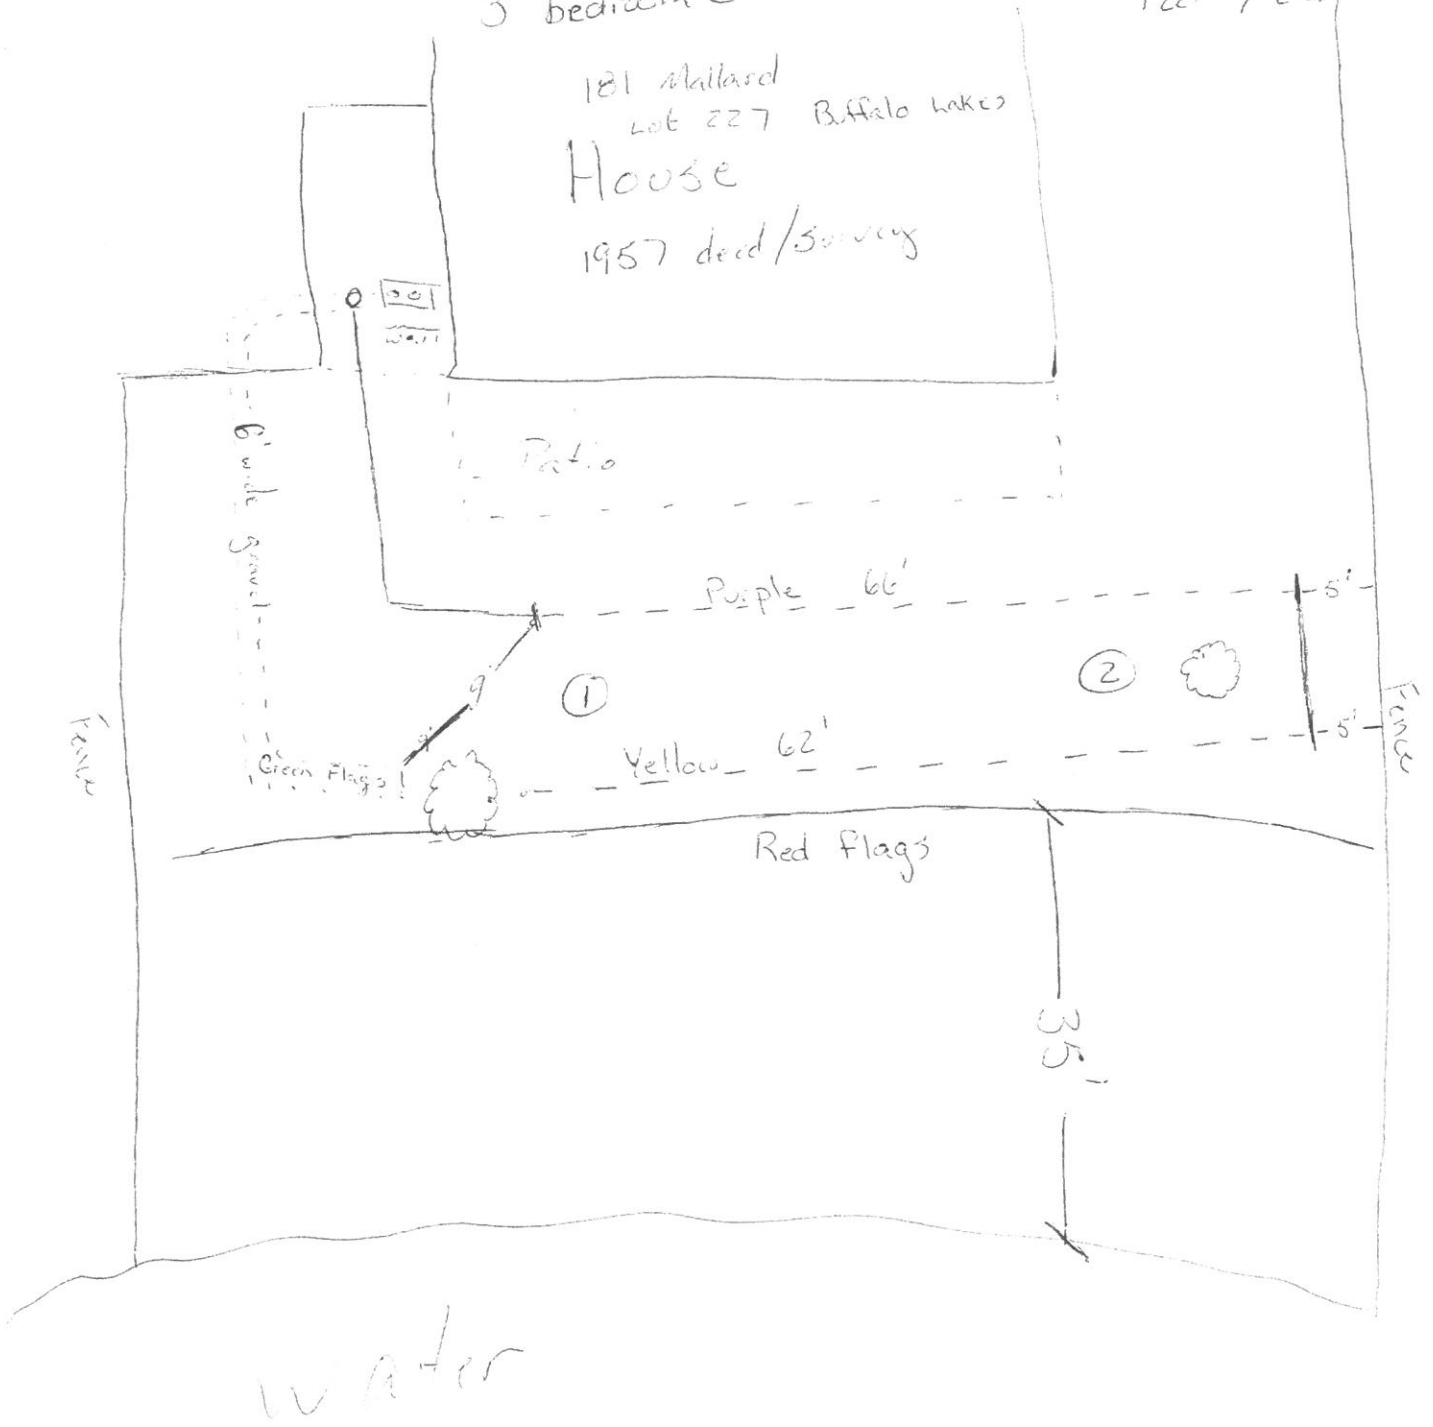 3 bedroom
181 Mallard
Lot 227 Buffalo Lakes
House
1957 deed/survey
6' wide gravel
Patio
Purple 66'
5'
1
2
9'
Fence
Fence
Yellow 62'
5'
Green Flags
Red Flags
35'
Water